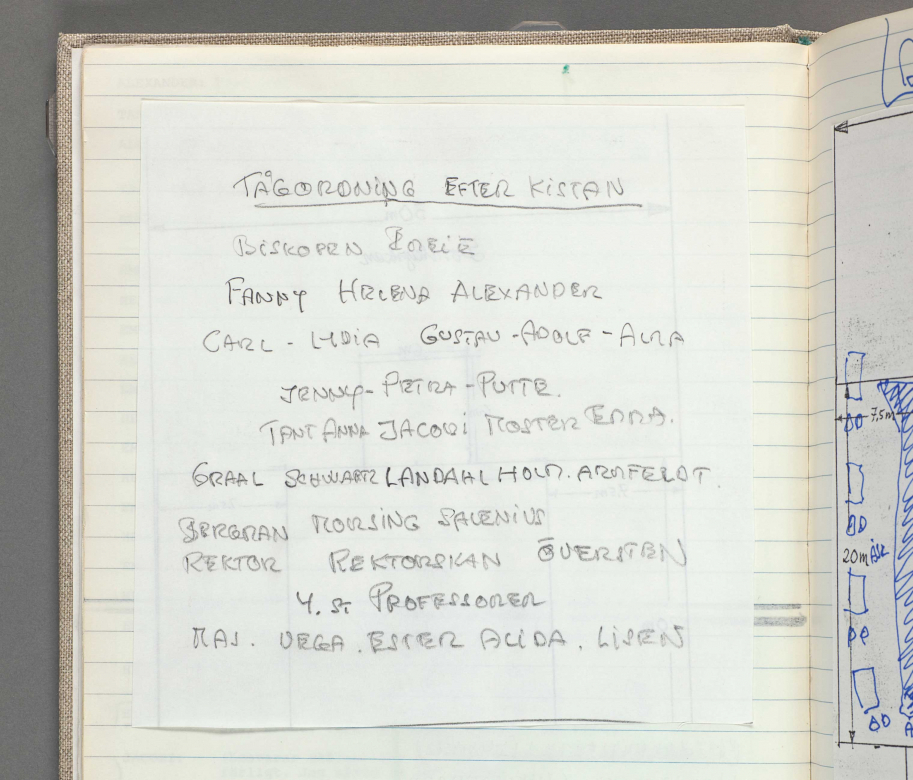 TÅGORDNING EFTER KISTAN
BISKOPEN EMELIE
FANNY HELENA ALEXANDER
CARL - LYDIA GUSTAV - ADOLF - ALMA
JENNY - PETRA - PUTTE.
TANT ANNA JACOBI MOSTER EMMA.
GRAAL SCHWARTZ LANDAHL HOLM. ARMFELDT.
BERGMAN MORSING SALENIUS
REKTOR REKTORSKAN ÖVERSTEN
4. ST PROFESSORER
MAJ. VEGA. ESTER ALIDA. LISEN
7,5m
20m